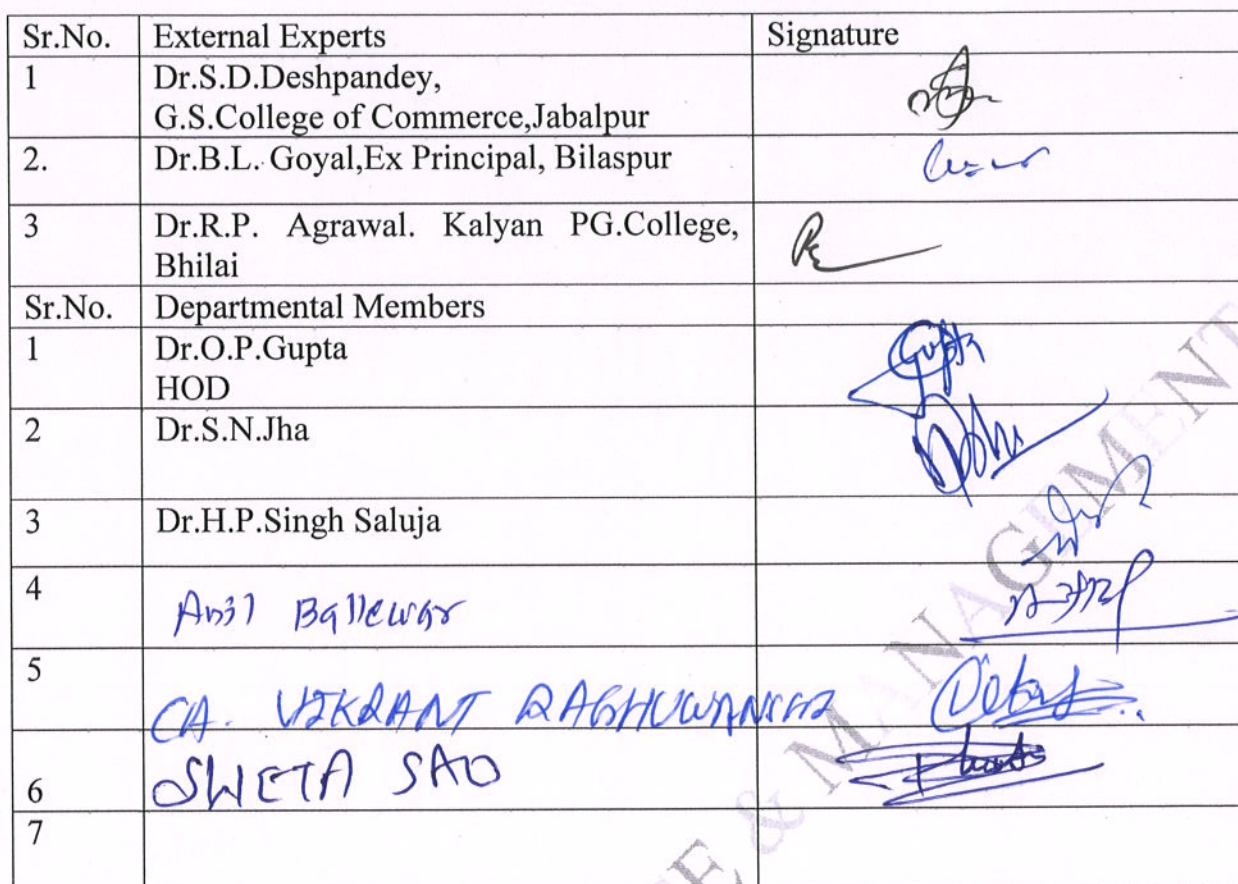 Sr.No. External Experts Signature
1 Dr.S.D.Deshpandey,
G.S.College of Commerce,Jabalpur
2. Dr.B.L. Goyal,Ex Principal, Bilaspur
3 Dr.R.P. Agrawal. Kalyan PG.College,
Bhilai
Sr.No. Departmental Members
1 Dr.O.P.Gupta Gupta
HOD
2 Dr.S.N.Jha
3 Dr.H.P.Singh Saluja
4 Anil Ballewar
5
CA. VIKRANT RAGHUWANSHI
6 SWETA SAO
7
E & MANAGEMENT